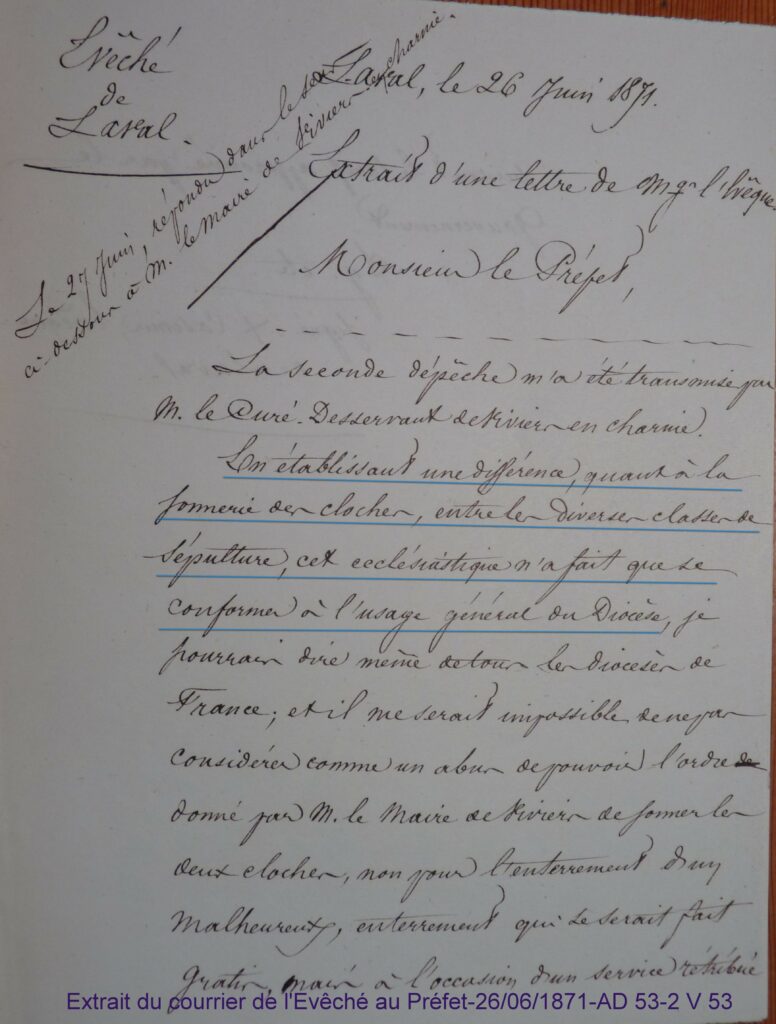 Evêché
de
Laval.
Laval, le 26 Juin 1871.
Le 27 Juin, répondu dans le sens
ci-dessous à M. le Maire de Viviers en charnie.
Extrait d'une lettre de Mgr l'Evêque
Monsieur le Préfet,
La seconde dépêche m'a été transmise par
M. le Curé-Desservant de Viviers en charnie.
En établissant une différence, quant à la
sonnerie des cloches, entre les diverses classes de
sépulture, cet ecclésiastique n'a fait que se
conformer à l'usage général du Diocèse, je
pourrais dire même de tous les diocèses de
France; et il me serait impossible de ne pas
considérer comme un abus de pouvoir l'ordre de
donné par M. le Maire de Viviers de sonner les
deux cloches, non pour l'enterrement d'un
malheureux, enterrement qui se serait fait
gratis, mais à l'occasion d'un service rétribué
Extrait du courrier de l'Evêché au Préfet-26/06/1871-AD 53-2 V 53